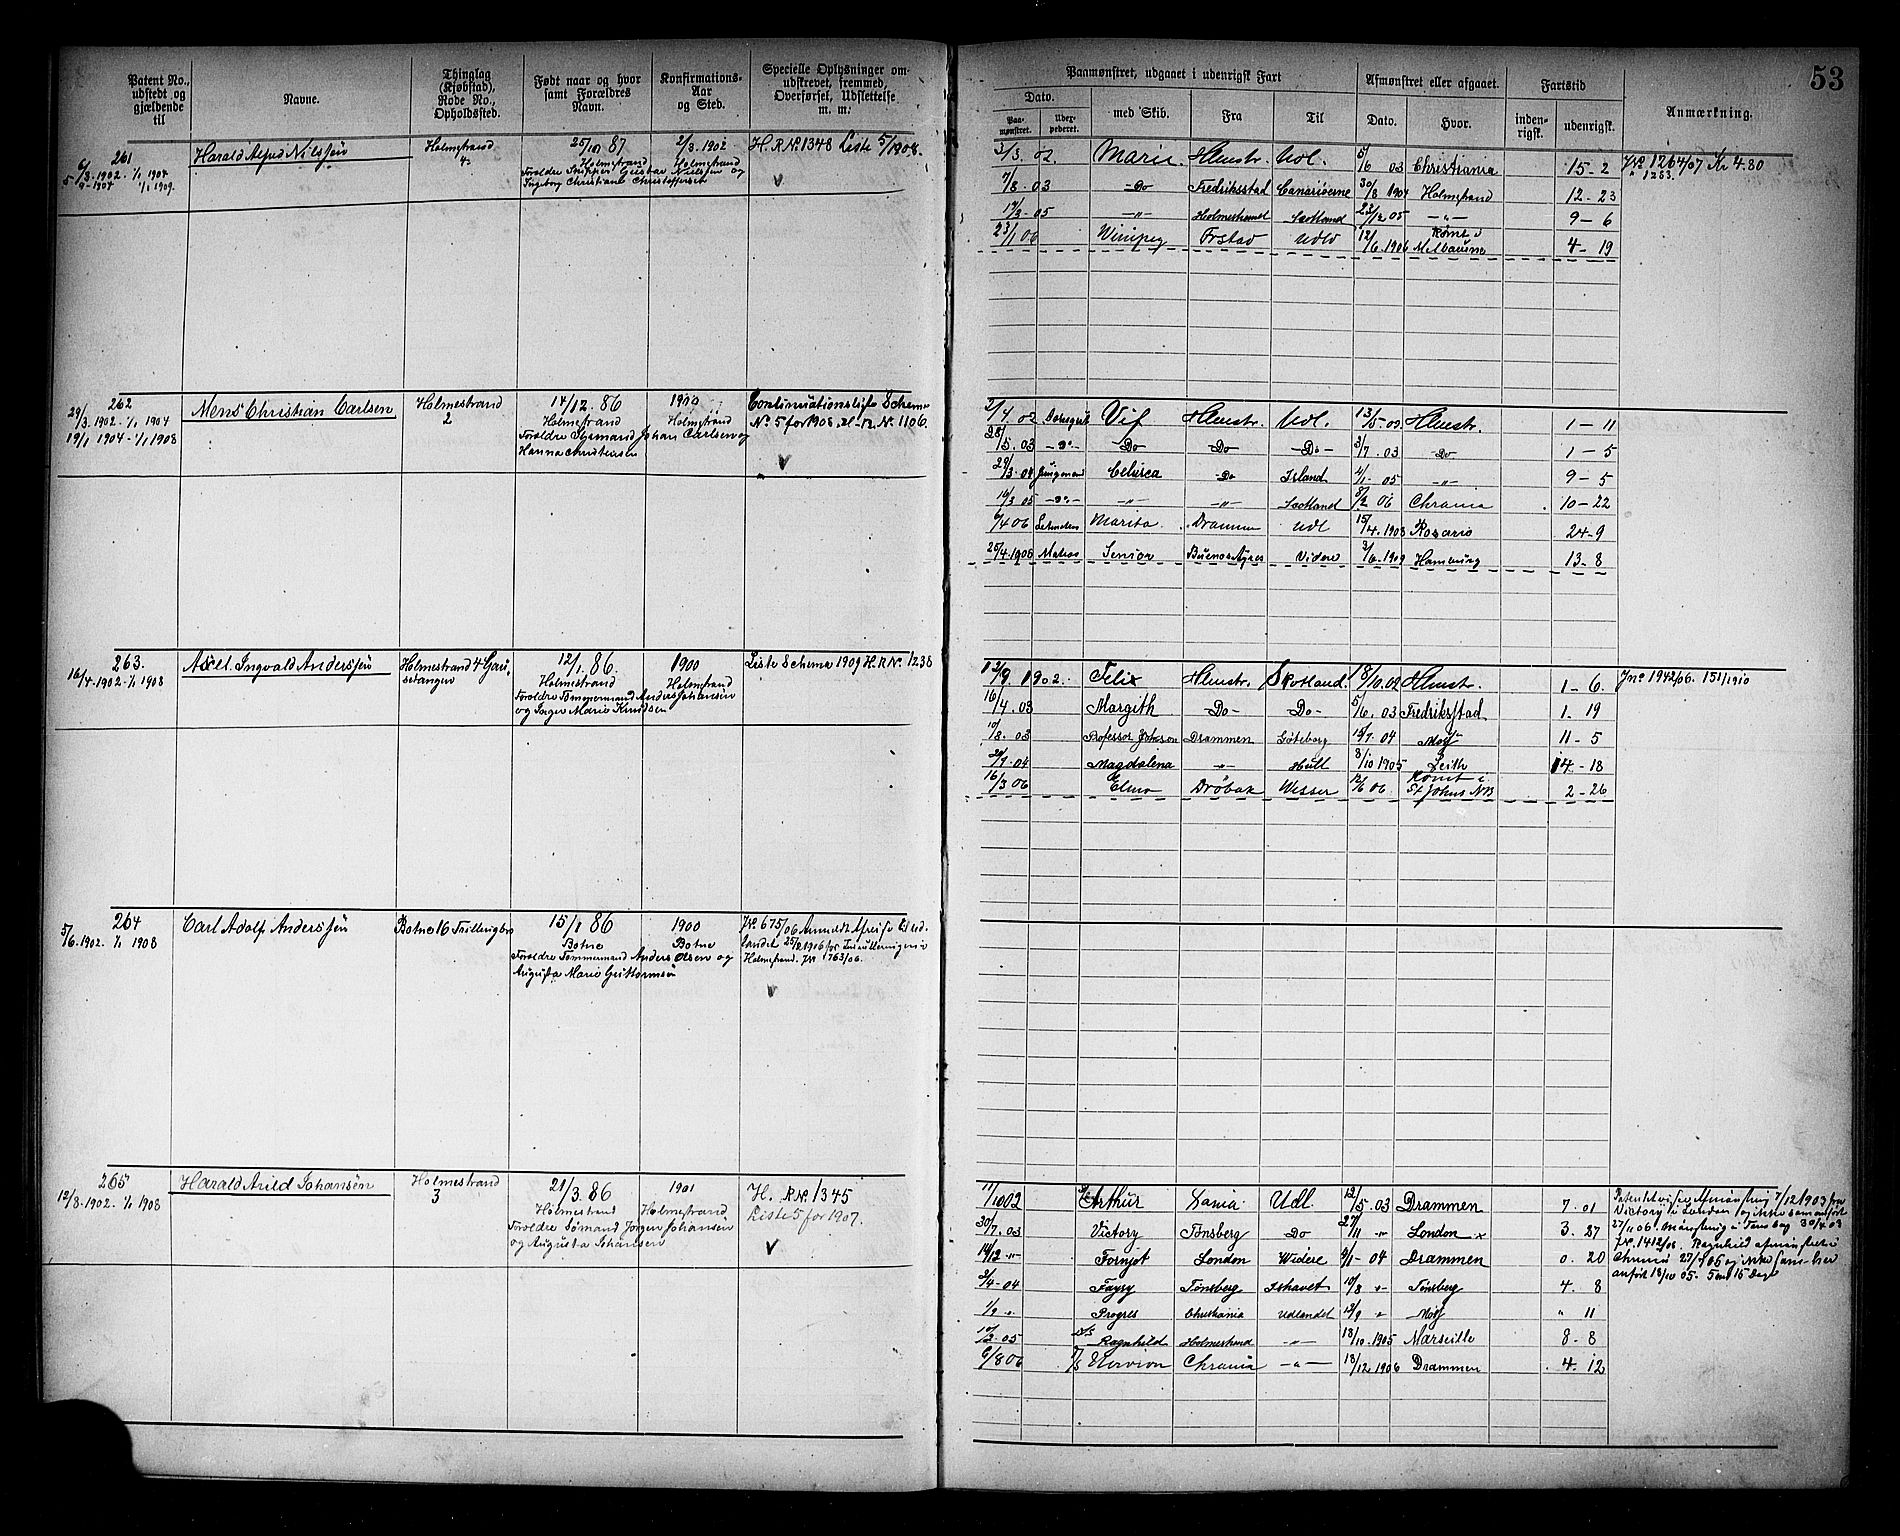 53
Patent No., udstedt og gjældende til
Navne.
Thinglag (Kjøbstad), Rode No., Opholdssted.
Født naar og hvor samt Forældres Navn.
Konfirmations-Aar og Sted.
Specielle Oplysninger om udskrevet, fremmed, Overførsel, Udslettelse m. m.
Paamønstret, udgaaet i udenrigsk Fart
Dato.
Paamønstret.
med Skib.
Fra
Til
Afmønstret eller afgaaet.
Dato.
Hvor.
Fartstid
indenrigsk.
udenrigsk.
Anmærkning.
261
6/3. 1902 - 1/1 1904
1/1 1909.
Harald Alfred Nilssen
Holmestrand
4.
25/10 87
Holmestrand
Forældre Skipper Gustav Nielsen og
Ingeborg Christiane Christoffersen
2/3. 1902
Holmestrand
H. R No. 1348 Liste 5/1908.
3/3. 02. Marie Hlmestr. Udl. 5/6 03 Christiania 15 - 2
Jno 1264/07 Kr 4.80
" 1253.
7/8. 03 - Do Fredriksstad Canariøerne 30/8 1904 Holmestrand 12 - 23
17/3. 05 - " - Holmestrand Scotland 23/12 05 - " - 9 - 6
23/1 06 Winipeg Frstad Udld 12/6. 1906 Rømt i Melbaurne 4 - 19
262
29/3. 1902 - 1/1 1904
19/1 1904 - 1/1 1908
Mens Christian Carlsen
Holmestrand
2
14/12. 86
Holmestrand
Forældre Sømand Johan Carlsen og
Hanna Christensen
1900
Holmestrand
Continuationsliste Schema
No. 5 for 1908. H-R. N. 1106.
2/4 02 Vif Hlmestr. Udl. 13/5 - 02 Hlmestr. 1 - 11
28/5. 03 - Do - Do Do - Do - 3/7. 03 Do 1 - 5
29/3. 04 Jungmand Celurca - Do Island 4/1. 05 - " - 9 - 5
16/3 05 - Do - - " - - " - Scotland 8/2 06 Chrania 10 - 22
6/4 06 Marita Drammen Udl 15/4. 1908 Rosario 24 - 9
25/4. 1908 Matros Senior Buenos Ayres Videre 3/6. 1909 Hamburg 13 - 8
263.
16/4. 1902 - 1/1 1908
Axel Ingvald Anderssen
Holmestrand 4
12/1. 86.
Holmestrand
Forældre Tømmermand Anders Johansen
og Inger Marie Knudsen
1900
Holmestrand
Liste Schema 1909 H. R No. 1238
13/9 1902. Felix Hlmestr. Skotland. 18/10. 02 Hlmestr. 1 - 6.
Jno 1942/06. 151/1910
16/4. 03 Margith - Do - - Do - 5/6. 03 Fredriksstad 1 - 19
10/8. 03 Professor Johnson Drammen Göteborg 15/7. 04 Moss 11 - 5
Magdalena - " - Hull 8/10 1905 Leith 14 - 18
16/3 06 Elmo Drøbak Wesser 12/6 06. Rømt i St Johns NB 2 - 26
264
5/6. 1902. 1/1 1908
Carl Adolf Anderssen
Botne 16
15/1 86
Botne
Forældre Tømmermand Anders Olsen og
Augusta Marie Guttormsen
1900
Botne
Jno. 675/06 Anmeldt Afreise til ud-
landet 25/2 1906 for Indrulleringen i
Holmestrand. Jno 1763/06.
265
12/8. 1902. 1/1 1908
Harald Arild Johansen
Holmestrand
3
21/3. 86
Holmestrand
Forældre Sømand Jørgen Johansen
og Augusta Johansen
1901
Holmestrand
H. R No. 1345
Liste 5 for 1907.
11/10 02 Arthur Dania Udl. 12/5. 03 Drammen 7. 01
30/7. 03 Victory Tønsberg Do 27/11 " London x 3. 27
14/12 - " - Fornjot London Widere 9/1 - 04 Drammen 0. 20
3/4 - 04 Faysy Tønsberg Ishavet 10/8 " Tønsberg 4. 8
1/9 " Progres Christiania Udlandet 12/9 " Moss " 11
10/2. 05 Ragnhild Holmestrand - " - 18/10. 1905 Marseille 8 - 8
6/8 06 Chrania - " - 18/12 1906 Drammen 4. 12
Patentet viser Afmønstring 7/12 1903 fra
Victory i London og ikke som anført
27/11 06. Mønstring i Tønsberg 30/7 03
Jno. 1412/06. Ragnhild afmønstret i
27/9 05 og ikke som her
anført 18/10 05. 5 md 15 Dage